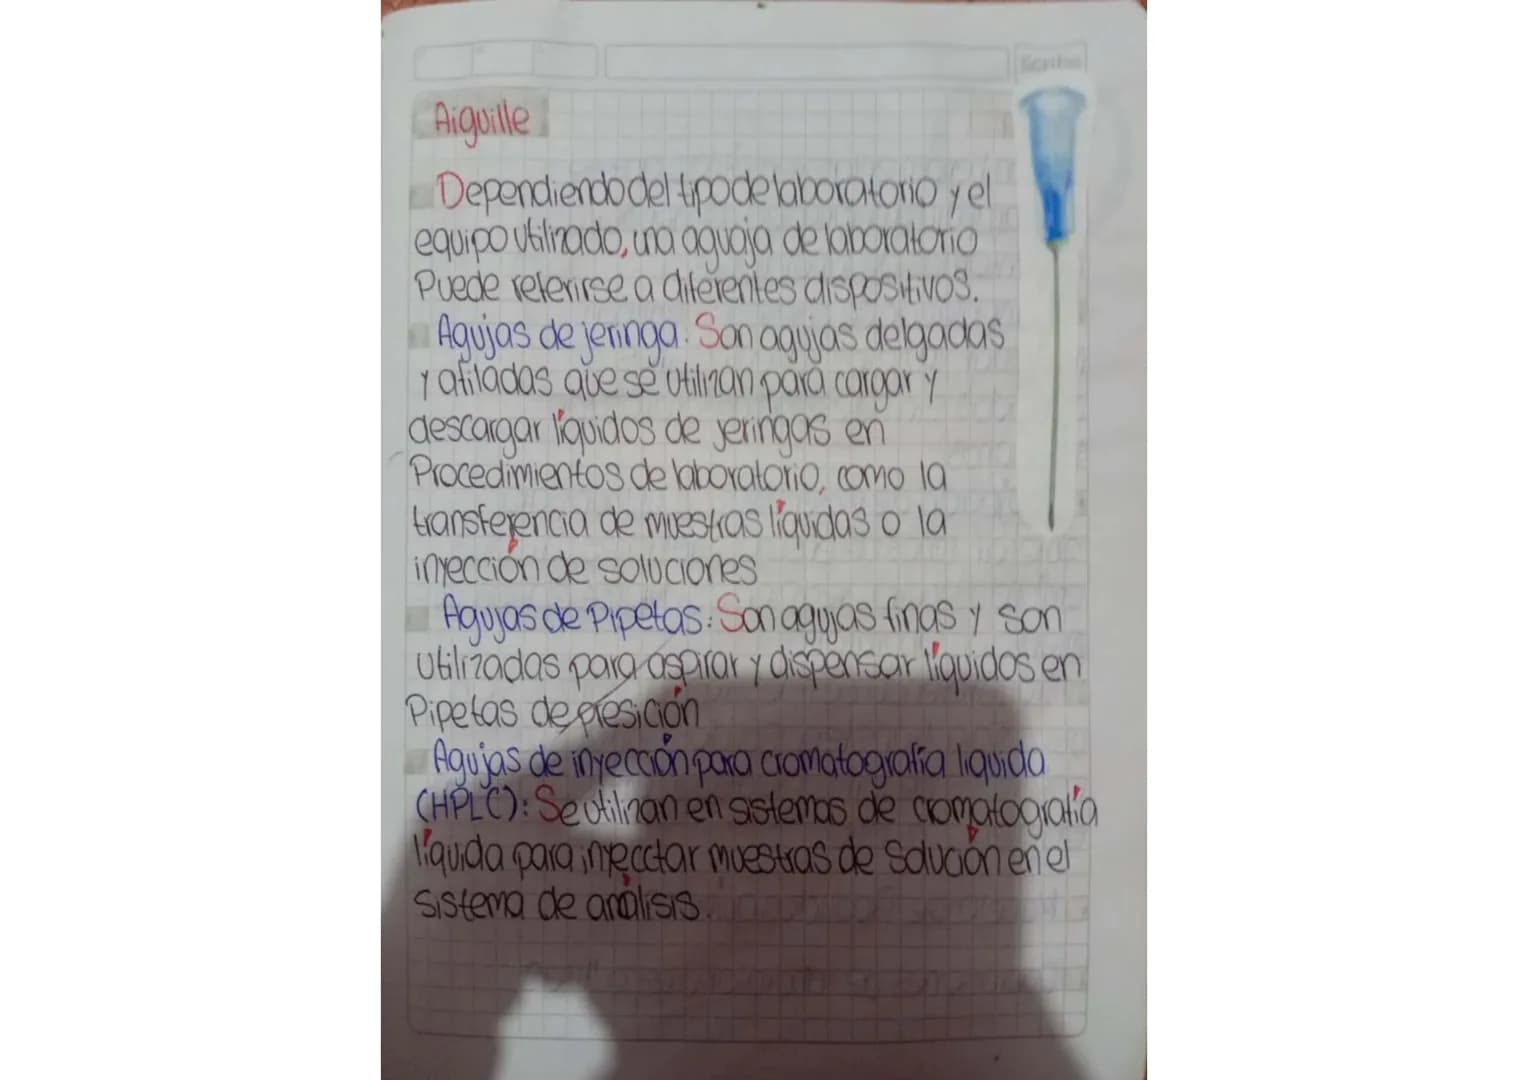 Scribe
Aiguille
Dependiendo del tipo de laboratorio y el
equipo utilizado, una aguaja de laboratorio
Puede referirse a diferentes dispositivos.
Agujas de jeringa. Son agujas delgadas
y afiladas que se utilizan para cargar y
descargar líquidos de jeringas en
Procedimientos de laboratorio, como la
transferencia de muestras líquidas o la
inyección de soluciones
Agujas de Pipetas: Son agujas finas y son
Utilizadas para aspirar y dispensar líquidos en
Pipetas de presición
Agujas de inyección para cromatografía liquida
(HPLC): Se utilizan en sistemas de cromatografía
líquida para inyecctar muestras de solución en el
sistema de análisis.